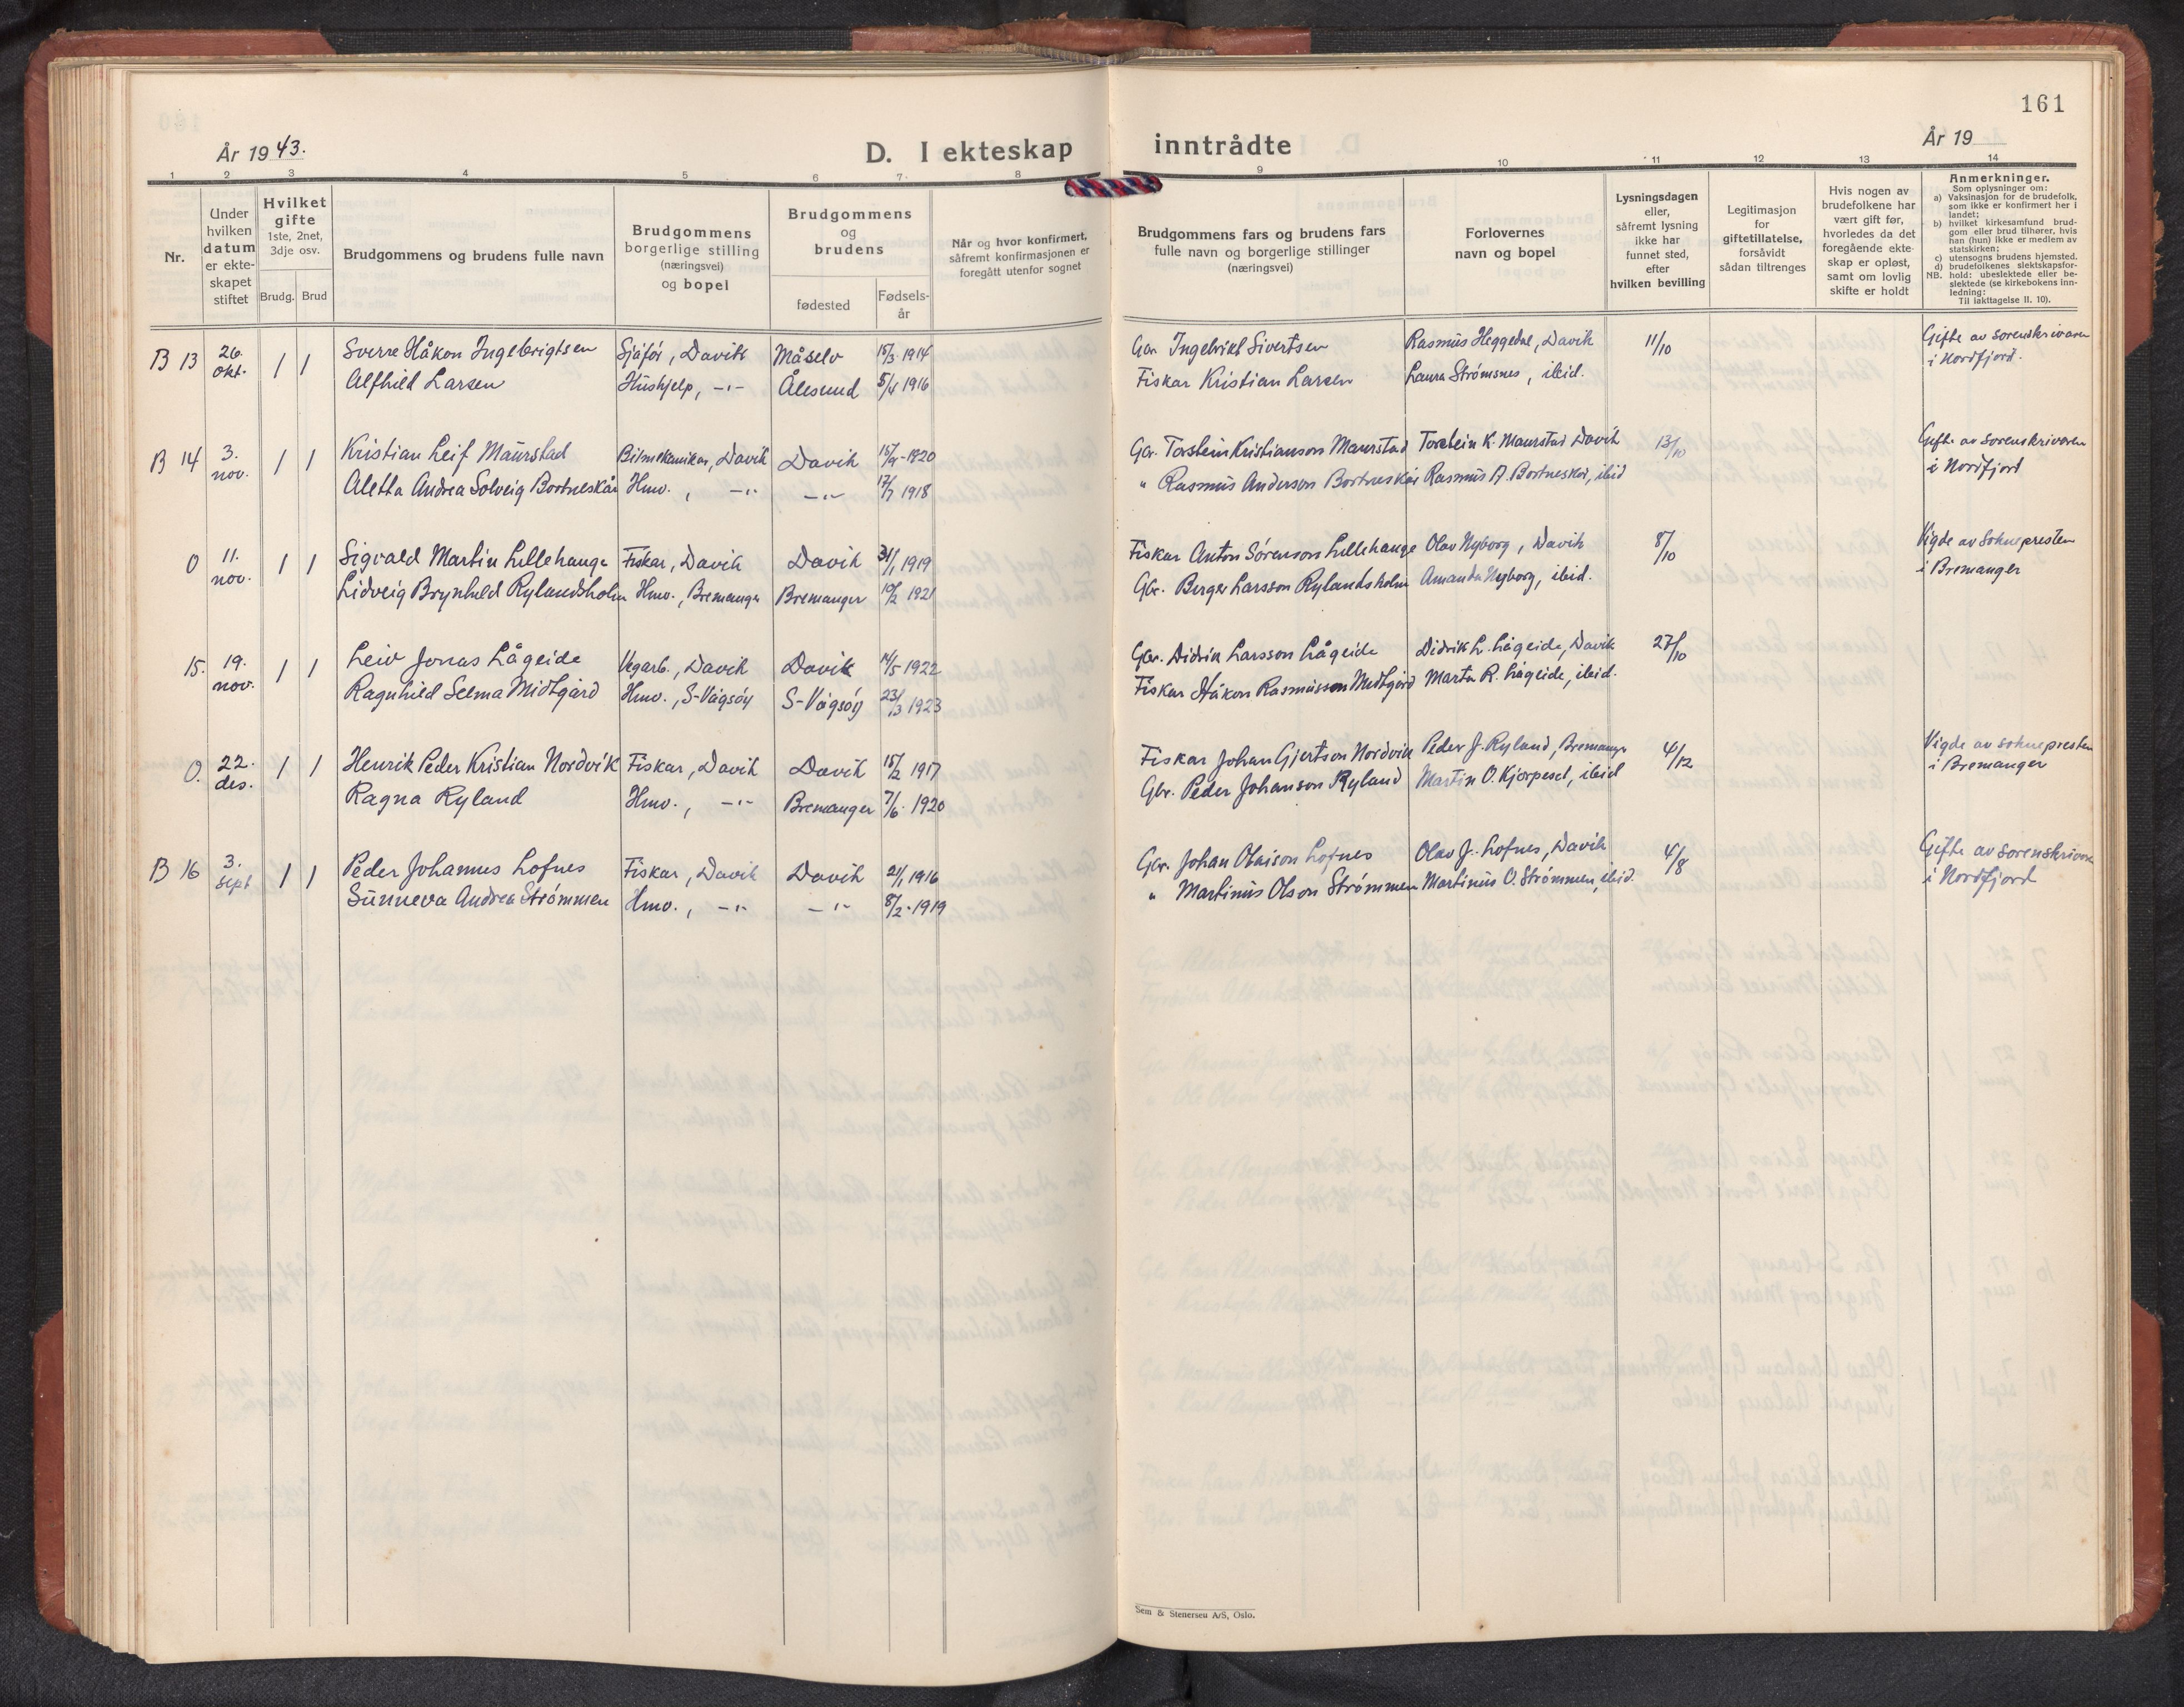 161
År 1943.
D. I ekteskap inntrådte
År 19
1 2 3 4 5 6 7 8 9 10 11 12 13 14
Nr.
Under
hvilken
datum
er ekte-
skapet
stiftet
Hvilket
gifte
1ste, 2net,
3dje osv.
Brudg. Brud
Brudgommens og brudens fulle navn
Brudgommens
borgerlige stilling
(næringsvei)
og bopel
Brudgommens
og
brudens
fødested
Fødsels-
år
Når og hvor konfirmert,
såfremt konfirmasjonen er
foregått utenfor sognet
Brudgommens fars og brudens fars
fulle navn og borgerlige stillinger
(næringsvei)
Forlovernes
navn og bopel
Lysningsdagen
eller,
såfremt lysning
ikke har
funnet sted,
efter
hvilken bevilling
Legitimasjon
for
giftetillatelse,
forsåvidt
sådan tiltrenges
Hvis nogen av
brudefolkene har
vært gift før,
hvorledes da det
foregående ekte-
skap er opløst,
samt om lovlig
skifte er holdt
Anmerkninger.
Som oplysninger om:
a) Vaksinasjon for de brudefolk,
som ikke er konfirmert her i
landet;
b) hvilket kirkesamfund brud-
gom eller brud tilhører, hvis
han (hun) ikke er medlem av
statskirken;
c) utensogns brudens hjemsted.
d) brudefolkenes slektskapsfor-
NB. hold: ubeslektede eller be-
slektede (se kirkebokens inn-
ledning:
Til iakttagelse II. 10).
B 13 26. okt. 1 1 Sverre Håkon Ingebrigtsen Sjåfør, Davik Måselv 15/3 1914 Gbr. Ingebrikt Sivertsen Rasmus Heggedal, Davik 11/10 Gifte av sorenskrivaren
Alfhild Larsen Hushjelp, -"- Ålesund 1916 Fiskar Kristian Larsen Laura Strømsnes, ibid. i Nordfjord.
B 14 3. nov. 1 1 Kristian Leif Maurstad Bilmekanikar, Davik Davik 15/9-1920 Gbr. Torstein Kristianson Maurstad Torstein K. Maurstad Davik 13/10 Gifte av sorenskrivaren
Aletta Andrea Solveig Bortneskår Hmv., -"- -"- 17/7 1918 " Rasmus Anderson Bortneskår Rasmus A. Bortneskår, ibid i Nordfjord
0 11. nov. 1 1 Sigvald Martin Lillehauge Fiskar, Davik Davik 31/1 1919 Fiskar Anton Sørenson Lillehauge Olav Nyborg, Davik 8/10 Vigde av sokнepresten
Lidveig Brynhild Rylandsholm Hmv., Bremanger Bremanger 10/2 1921 Gbr. Berger Larsson Rylandsholm Amanda Nyborg, ibid. i Bremanger
15. 19. nov. 1 1 Leiv Jonas Lågeide Vegarb., Davik Davik 14/5 1922 Gbr. Didrik Larsson Lågeide Didrik L. Lågeide, Davik 27/10
Ragnhild Selma Midtgård Hmv., S-Vågsøy S-Vågsøy 23/3 1923 Fiskar Håkon Rasmusson Midtgård Marta R. Lågeide, ibid.
0. 22. des. 1 1 Henrik Peder Kristian Nordvik Fiskar, Davik Davik 15/2 1917 Fiskar Johan Gjertson Nordvik Peder J. Ryland, Bremanger 4/12 Vigde av soknepresten
Ragna Ryland Hmv., -"- Bremanger 7/6. 1920 Gbr. Peder Johanson Ryland Martin O. Kjørpeset, ibid i Bremanger
B 16 3. sept 1 1 Peder Johannes Lofnes Fiskar, Davik Davik 21/1 1916 Gbr. Johan Olaison Lofnes Olav J. Lofnes, Davik 4/8 Gifte av sorenskrivar
Sunneva Andrea Strømmen Hmv., -"- -"- 8/2-1919 " Martinus Olson Strømmen Martinus O. Strømmen, ibid. i Nordfjord
Sem & Stenersen A/S, Oslo.